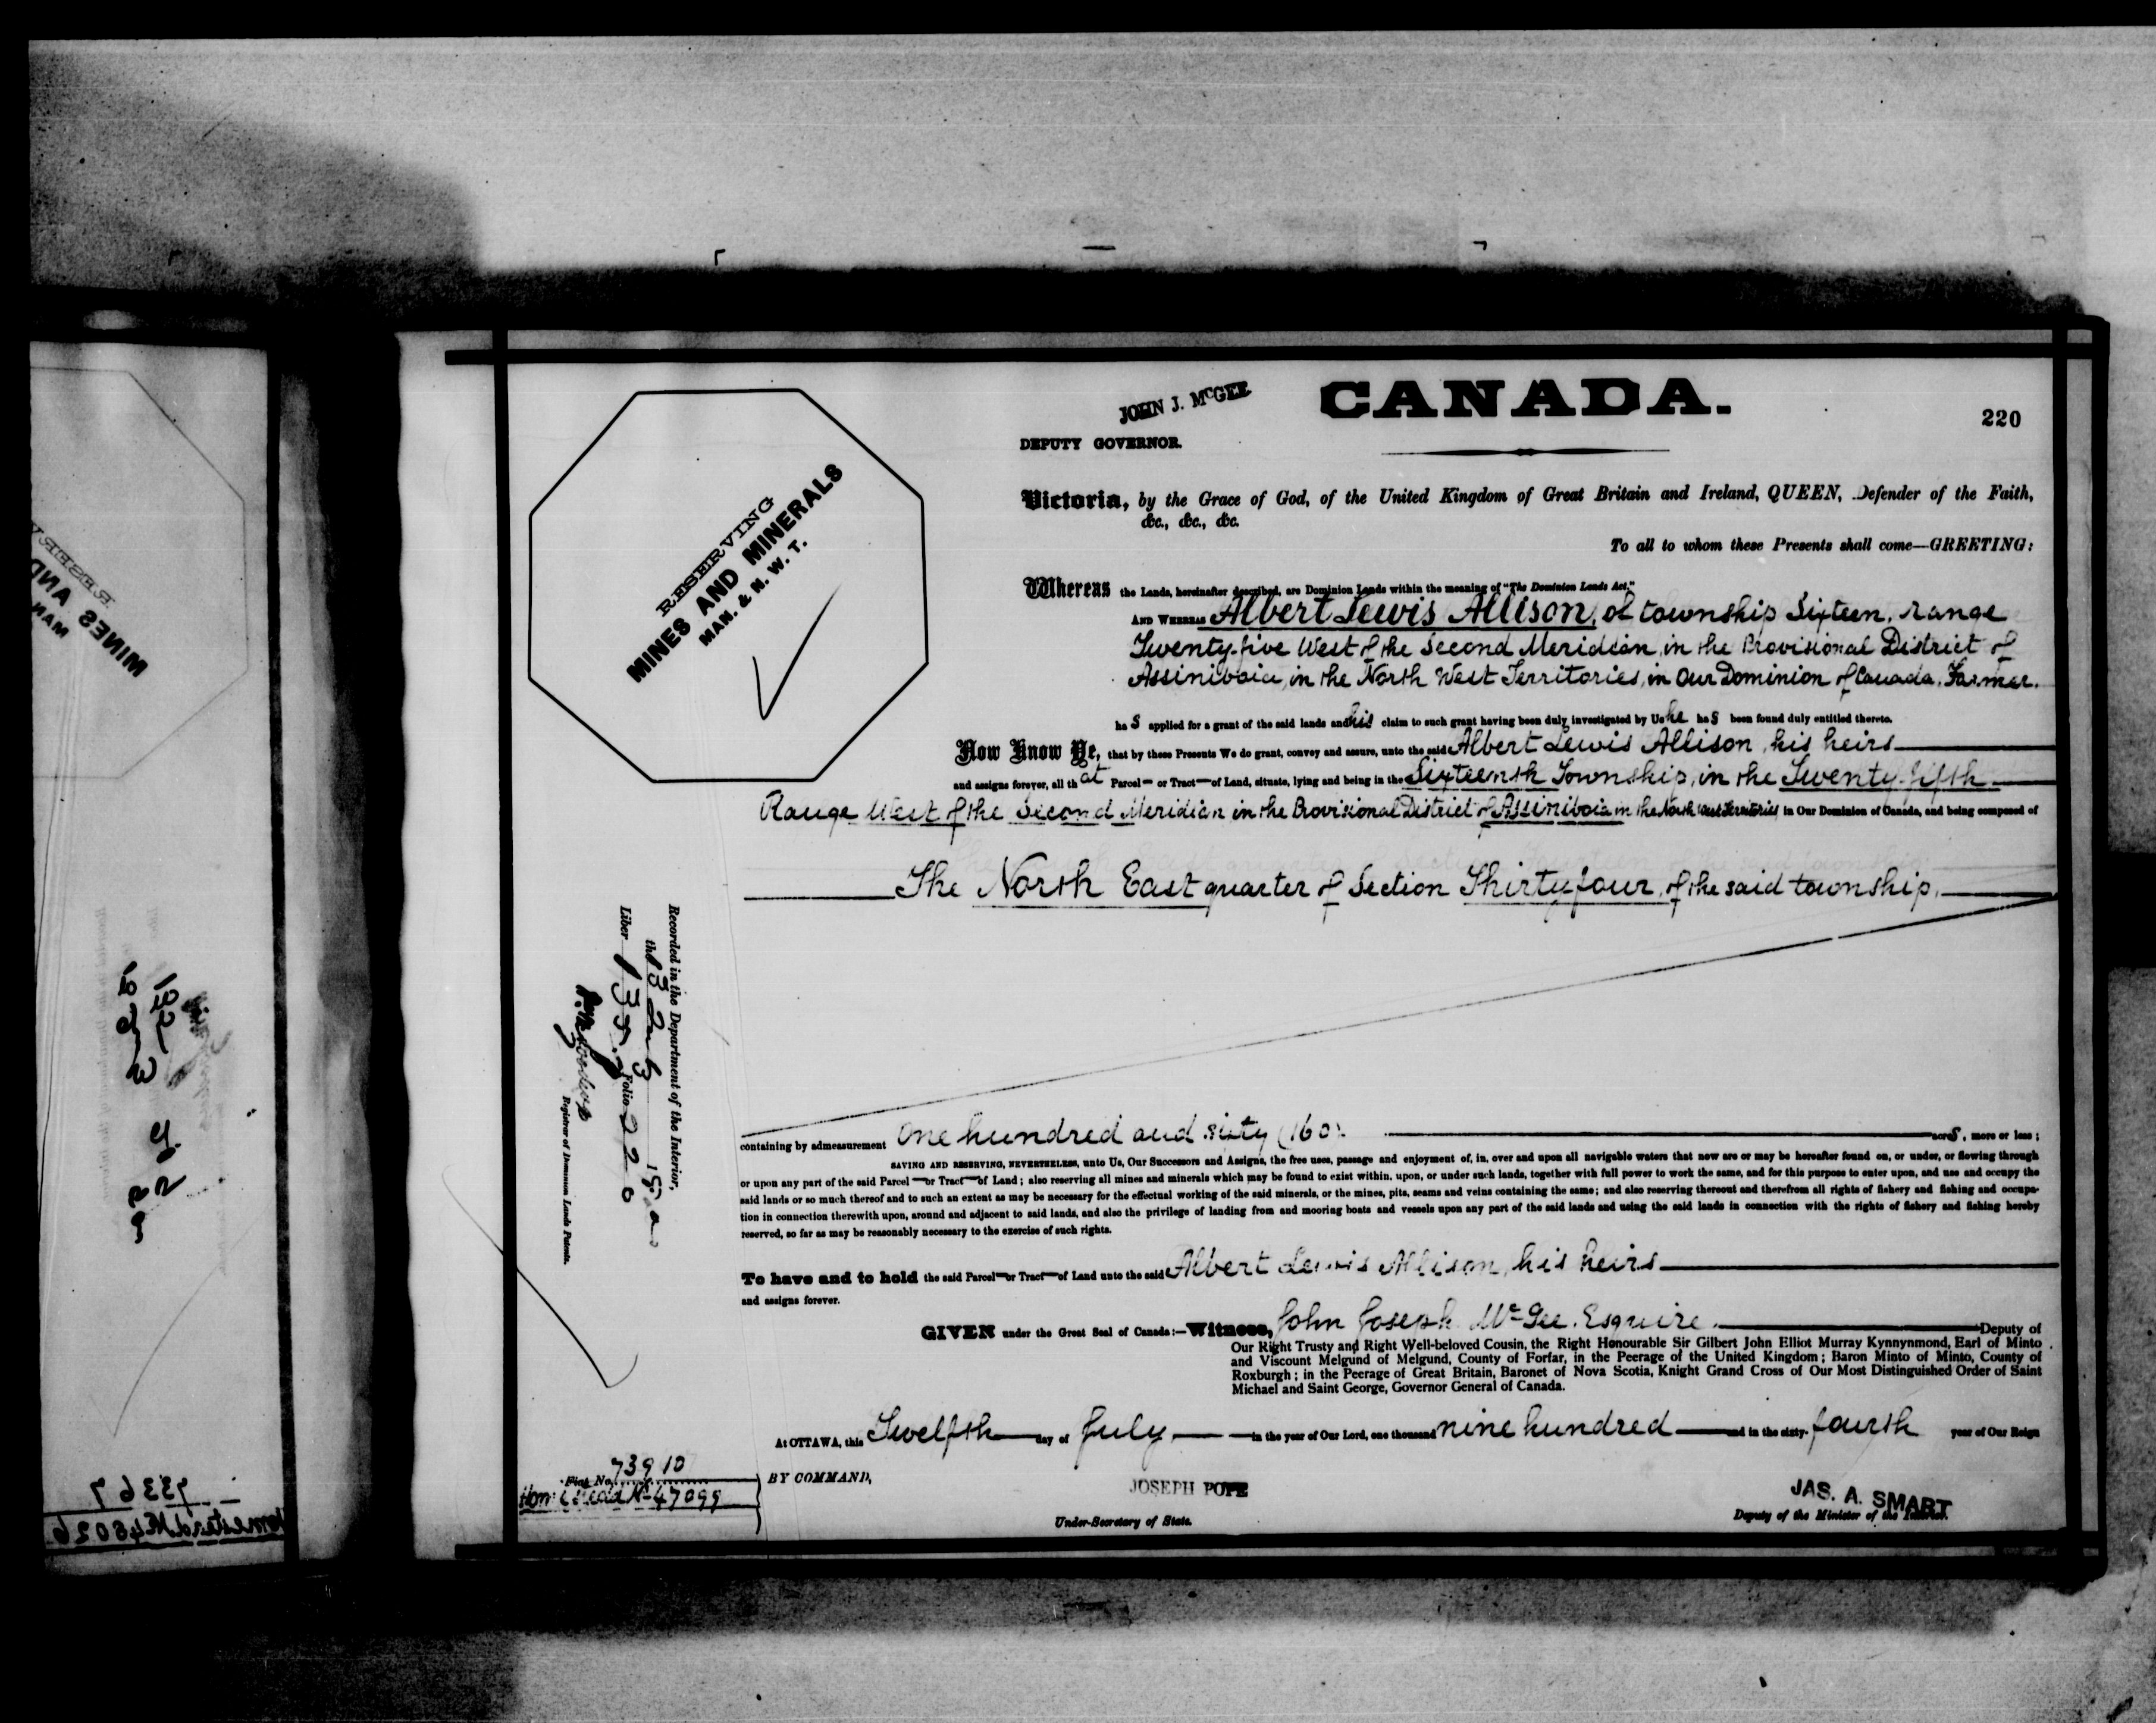 JOHN J. McGEE
CANADA.
220
DEPUTY GOVERNOR.
RESERVING
MINES AND MINERALS
MAN. & N. W. T.
Victoria, by the Grace of God, of the United Kingdom of Great Britain and Ireland, QUEEN, Defender of the Faith,
&c., &c., &c.
To all to whom these Presents shall come—GREETING:
Whereas the Lands, hereinafter described, are Dominion Lands within the meaning of "The Dominion Lands Act,"
AND WHEREAS Albert Lewis Allison, of township Sixteen, range
Twenty-five West of the Second Meridian, in the Provisional District of
Assiniboia, in the North West Territories, in Our Dominion of Canada, Farmer.
has applied for a grant of the said lands and his claim to such grant having been duly investigated by Us he has been found duly entitled thereto.
Now Know Ye, that by these Presents We do grant, convey and assure, unto the said Albert Lewis Allison, his heirs
and assigns forever, all that Parcel— or Tract— of Land, situate, lying and being in the Sixteenth Township, in the Twenty-fifth
Range West of the Second Meridian in the Provisional District of Assiniboia in the North West Territories, in Our Dominion of Canada, and being composed of
The North East quarter of Section Thirty four, of the said township.
Recorded in the Department of the Interior,
Liber 135. Folio 220
Registrar of Dominion Lands Patents.
containing by admeasurement One hundred and sixty (160) acres, more or less;
SAVING AND RESERVING, NEVERTHELESS, unto Us, Our Successors and Assigns, the free uses, passage and enjoyment of, in, over and upon all navigable waters that now are or may be hereafter found on, or under, or flowing through
or upon any part of the said Parcel— or Tract— of Land; also reserving all mines and minerals which may be found to exist within, upon, or under such lands, together with full power to work the same, and for this purpose to enter upon, and use and occupy the
said lands or so much thereof and to such an extent as may be necessary for the effectual working of the said minerals, or the mines, pits, seams and veins containing the same; and also reserving thereout and therefrom all rights of fishery and fishing and occupa-
tion in connection therewith upon, around and adjacent to said lands, and also the privilege of landing from and mooring boats and vessels upon any part of the said lands and using the said lands in connection with the rights of fishery and fishing hereby
reserved, so far as may be reasonably necessary to the exercise of such rights.
To have and to hold the said Parcel— or Tract— of Land unto the said Albert Lewis Allison, his heirs
and assigns forever.
GIVEN under the Great Seal of Canada:—Witness, John Joseph McGee, Esquire. Deputy of
Our Right Trusty and Right Well-beloved Cousin, the Right Honourable Sir Gilbert John Elliot Murray Kynnynmond, Earl of Minto
and Viscount Melgund of Melgund, County of Forfar, in the Peerage of the United Kingdom; Baron Minto of Minto, County of
Roxburgh; in the Peerage of Great Britain, Baronet of Nova Scotia, Knight Grand Cross of Our Most Distinguished Order of Saint
Michael and Saint George, Governor General of Canada.
At OTTAWA, this Twelfth day of July in the year of Our Lord, one thousand nine hundred and in the sixty-fourth year of Our Reign
73910
Homestead No 47099
BY COMMAND,
JOSEPH POPE
Under-Secretary of State.
JAS. A. SMART
Deputy of the Minister of the Interior.
RESERV
MINES AND
MAN
73367
Homestead No 48026